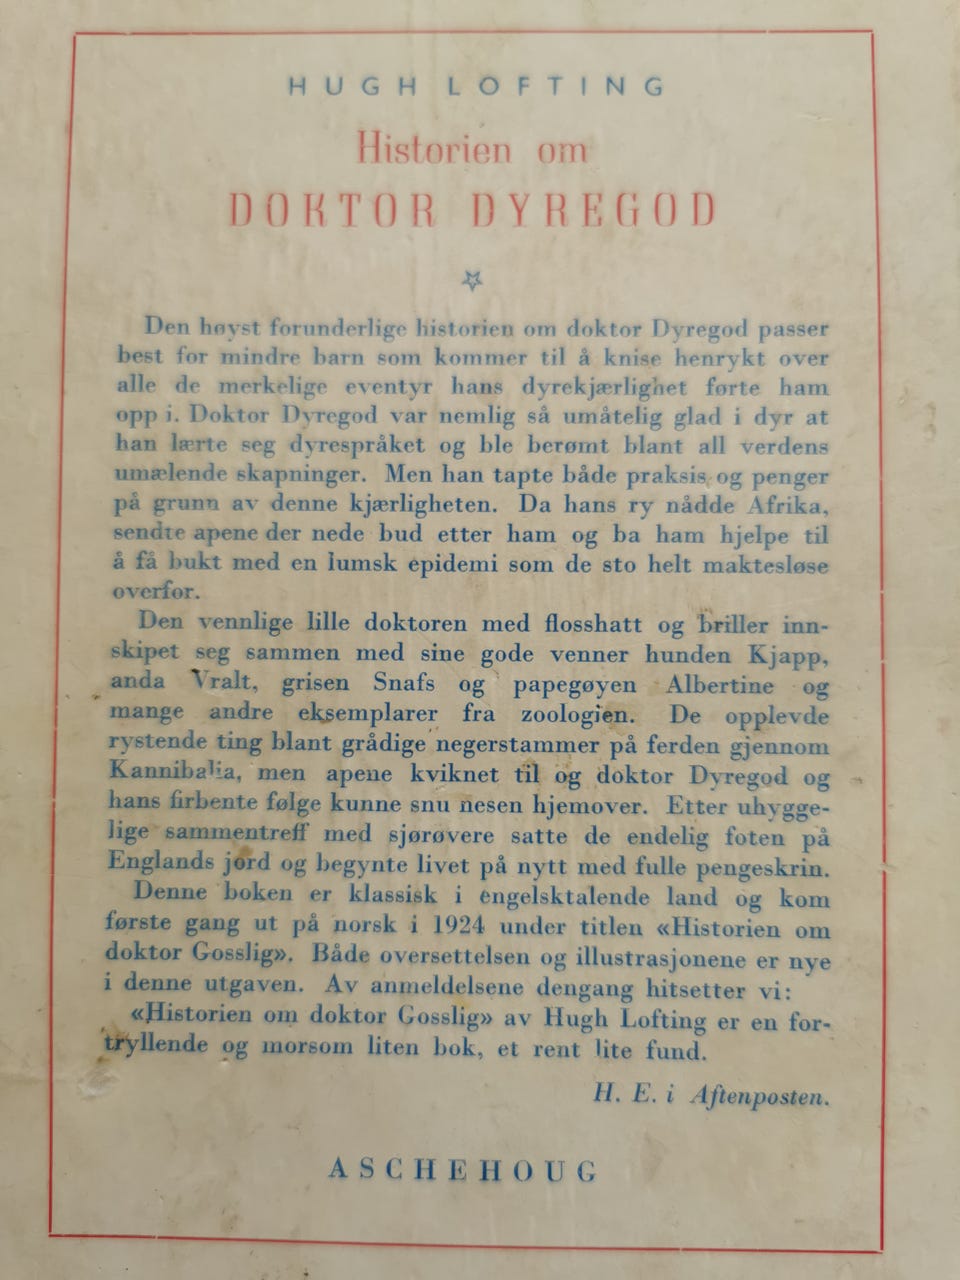 HUGH LOFTING
Historien om
DOKTOR DYREGOD
Den høyst forunderlige historien om doktor Dyregod passer
best for mindre barn som kommer til å knise henrykt over
alle de merkelige eventyr hans dyrekjærlighet førte ham
opp i. Doktor Dyregod var nemlig så umåtelig glad i dyr at
han lærte seg dyrespråket og ble berømt blant all verdens
umælende skapninger. Men han tapte både praksis og penger
på grunn av denne kjærligheten. Da hans ry nådde Afrika,
sendte apene der nede bud etter ham og ba ham hjelpe til
å få bukt med en lumsk epidemi som de sto helt maktesløse
overfor.
Den vennlige lille doktoren med flosshatt og briller inn-
skipet seg sammen med sine gode venner hunden Kjapp,
anda Vralt, grisen Snafs og papegøyen Albertine og
mange andre eksemplarer fra zoologien. De opplevde
rystende ting blant grådige negerstammer på ferden gjennom
Kannibalia, men apene kviknet til og doktor Dyregod og
hans firbente følge kunne snu nesen hjemover. Etter uhygge-
lige sammentreff med sjørøvere satte de endelig foten på
Englands jord og begynte livet på nytt med fulle pengeskrin.
Denne boken er klassisk i engelsktalende land og kom
første gang ut på norsk i 1924 under titlen «Historien om
doktor Gosslig». Både oversettelsen og illustrasjonene er nye
i denne utgaven. Av anmeldelsene dengang hitsetter vi:
«Historien om doktor Gosslig» av Hugh Lofting er en for-
tryllende og morsom liten bok, et rent lite fund.
H. E. i Aftenposten.
ASCHEHOUG